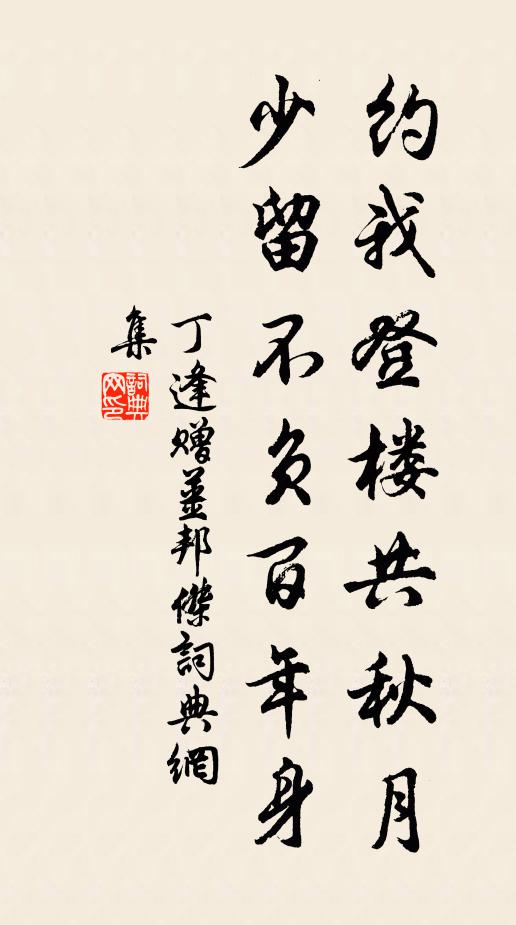 约我登楼共秋月
少留不负百年身
丁逢赠姜邦傑詞典網
集
詞典网印